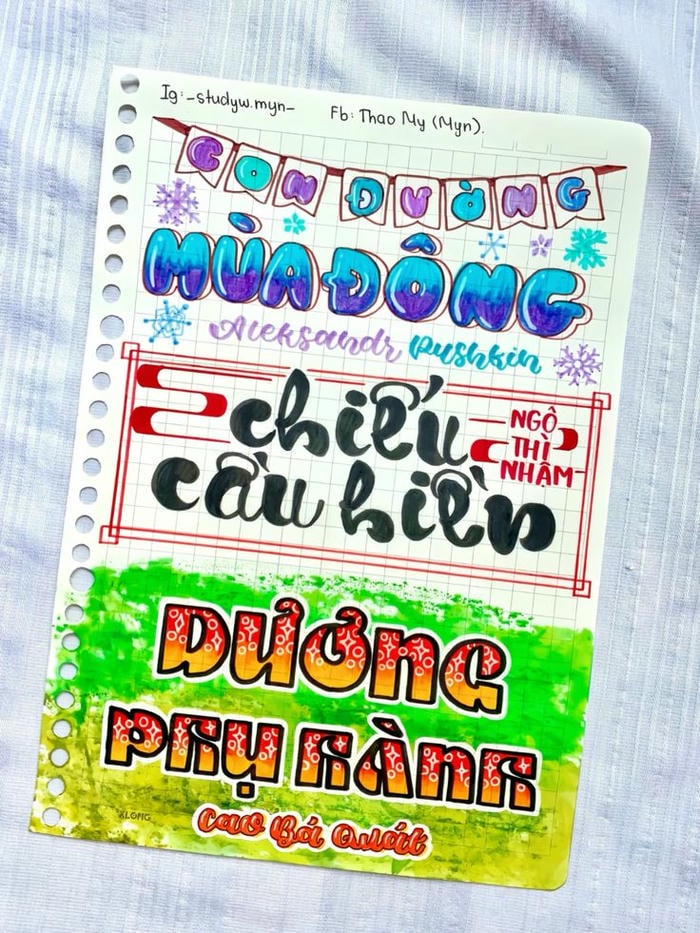 Ig: -studyw.myn- Fb: Thao My (Myn).
CON ĐƯỜNG
MÙA ĐÔNG
Aleksandr Pushkin
chiếu
cầu hiền
NGÔ
THÌ
NHẬM
DƯƠNG
PHỤ HÀNH
Cao Bá Quát
KLONG